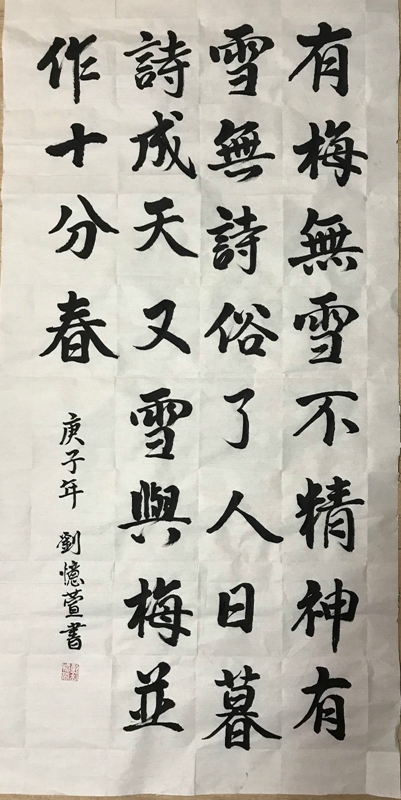 有梅無雪不精神有
雪無詩俗了人日暮
詩成天又雪與梅並
作十分春
庚子年 劉憶萱書